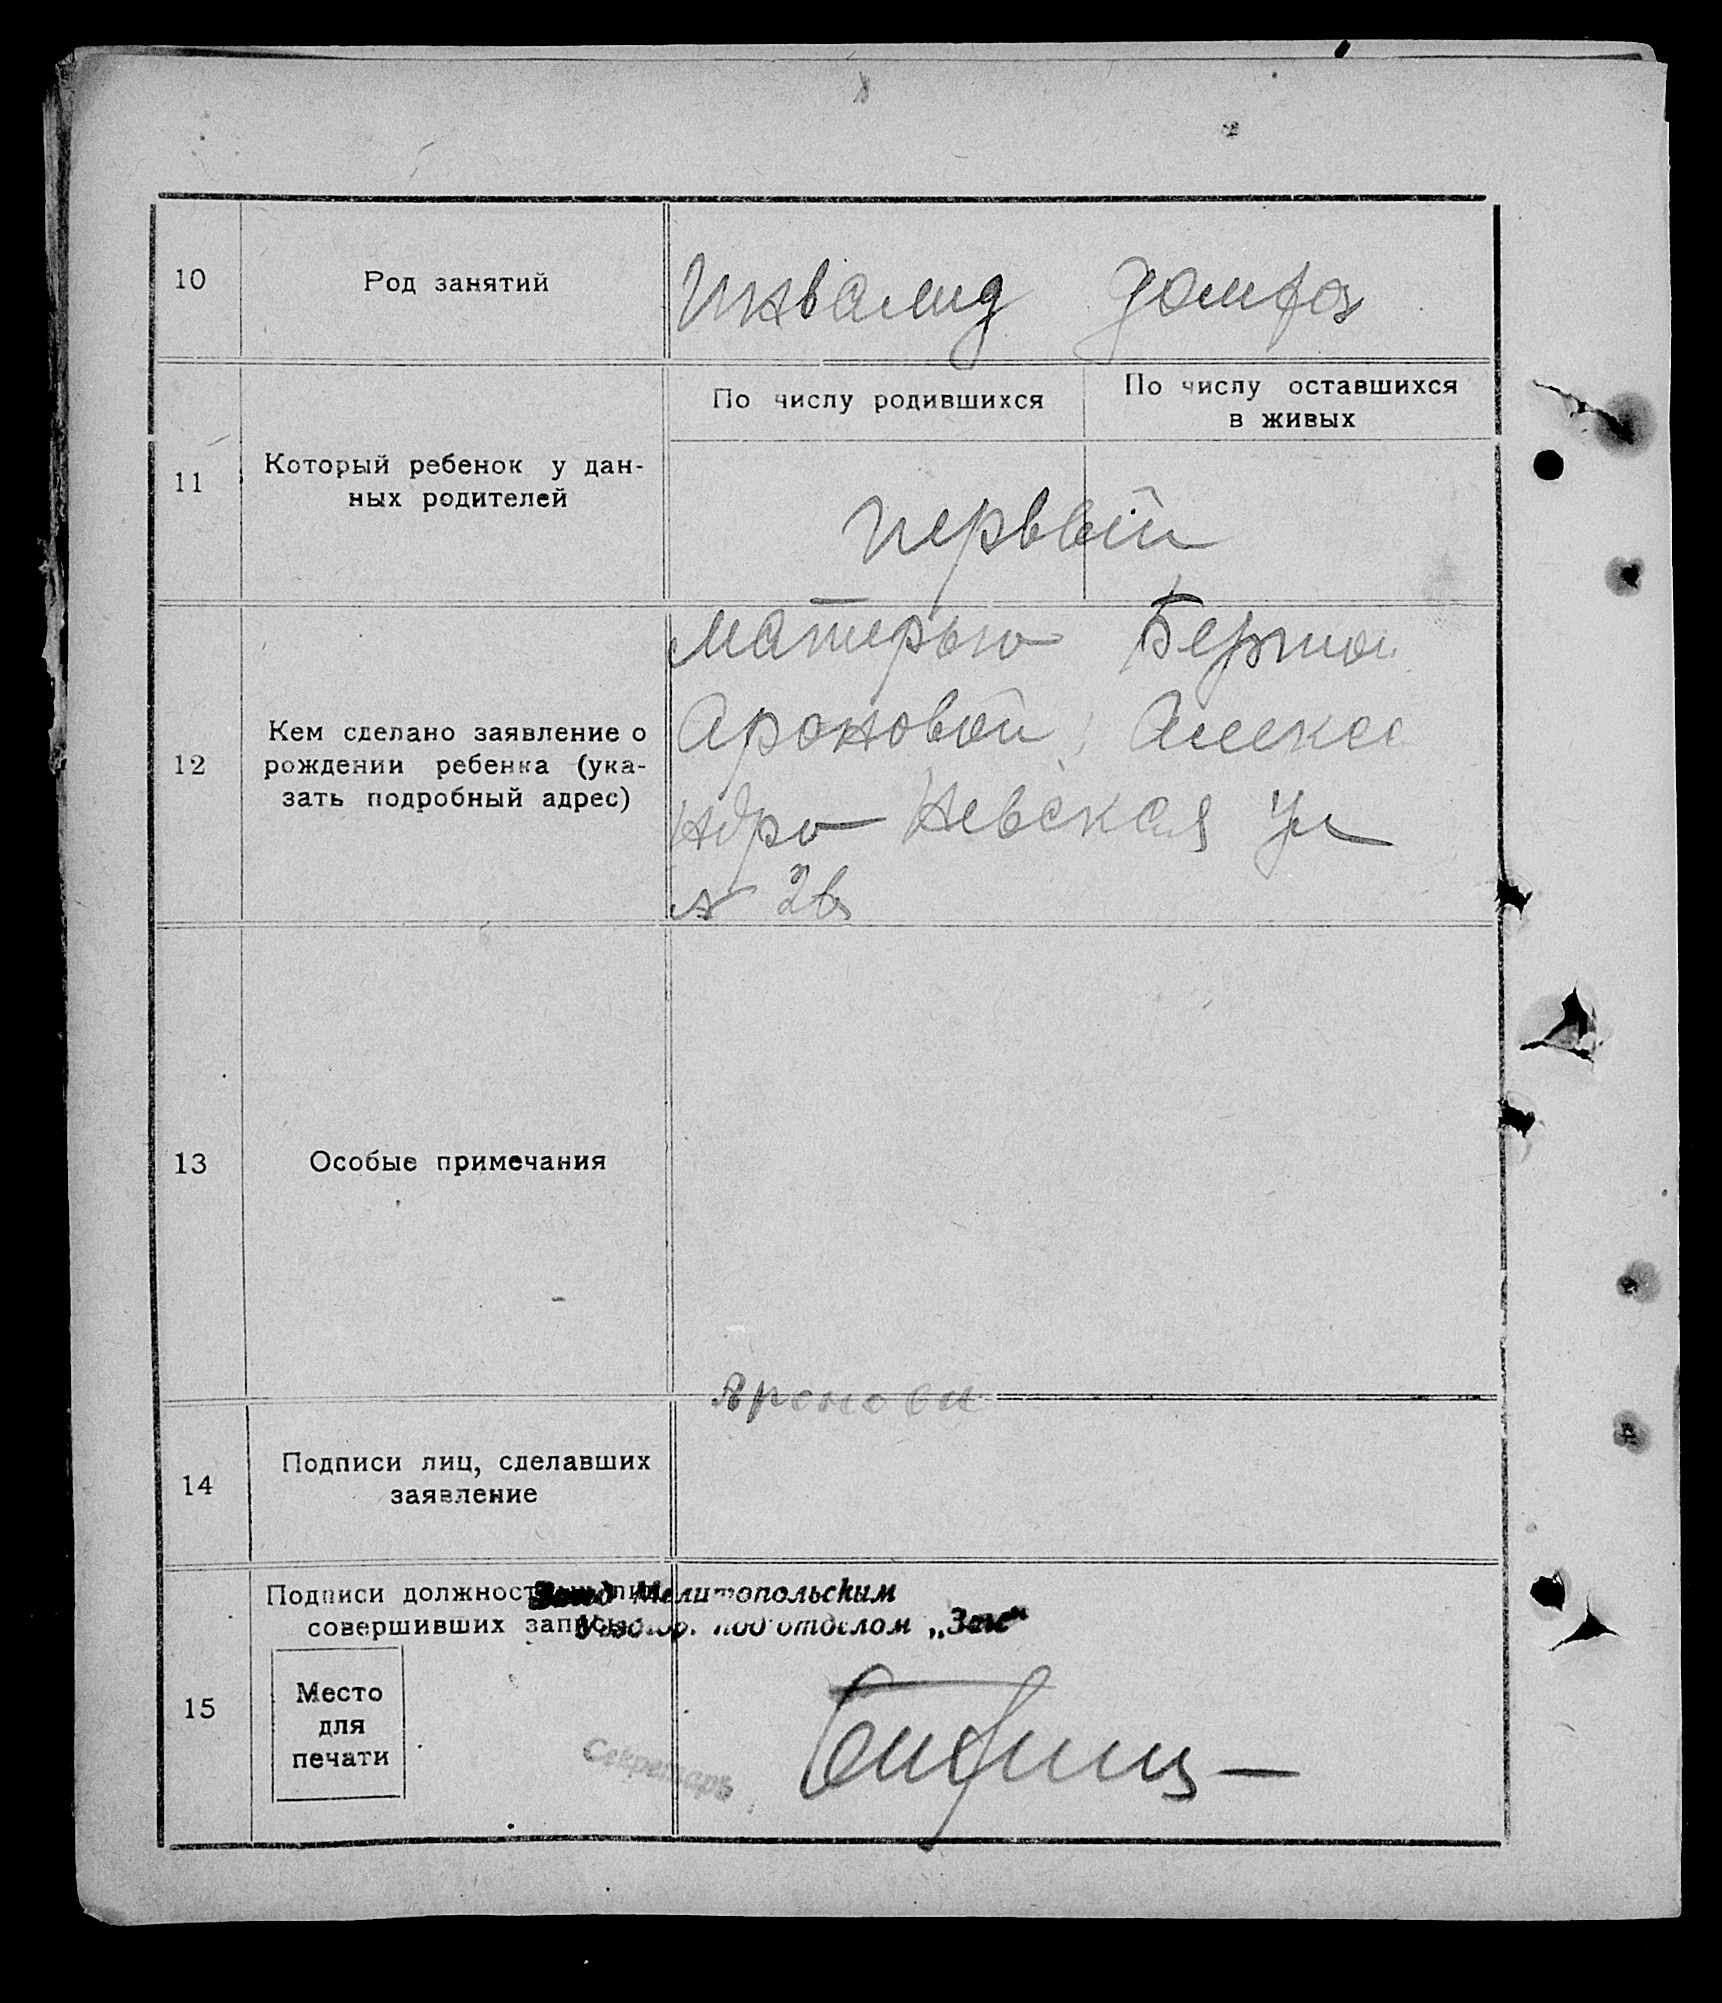 10
Род занятий
Инвалид домхоз
11
Который ребенок у дан-
ных родителей
По числу родившихся
По числу оставшихся
в живых
первый
12
Кем сделано заявление о
рождении ребенка (ука-
зать подробный адрес)
матерью Бертой
Ароновой, Алекса
ндро Невская ул
13
Особые примечания
14
Подписи лиц, сделавших
заявление
Аронова
15
Подписи должност лиц
совершивших запись
Мелитопольским
под'отделом „Загс"
Место
для
печати
Секретарь